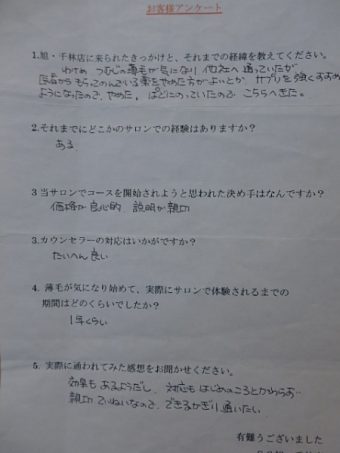 お客様アンケート
1.旭・千林店に来られたきっかけと、それまでの経緯を教えてください。
わけめ つむじの薄毛が気になり 他社へ通っていたが
医者からもらってのんでいる薬をやめた方がよいとか サプリを強くすすめ
ようになったので、やめた。ぱどにのっていたので こちらへきた。
2.それまでにどこかのサロンでの経験はありますか？
ある
3 当サロンでコースを開始されようと思われた決め手はなんですか？
価格が良心的 説明が親切
3.カウンセラーの対応はいかがですか？
たいへん良い
4. 薄毛が気になり始めて、実際にサロンで体験されるまでの
期間はどのくらいでしたか？
1年くらい
5. 実際に通われてみた感想をお聞かせください。
効果もあるようだし、対応もはじめのころとかわらず
親切 ていねいなので、できるかぎり通いたい。
有難うございました